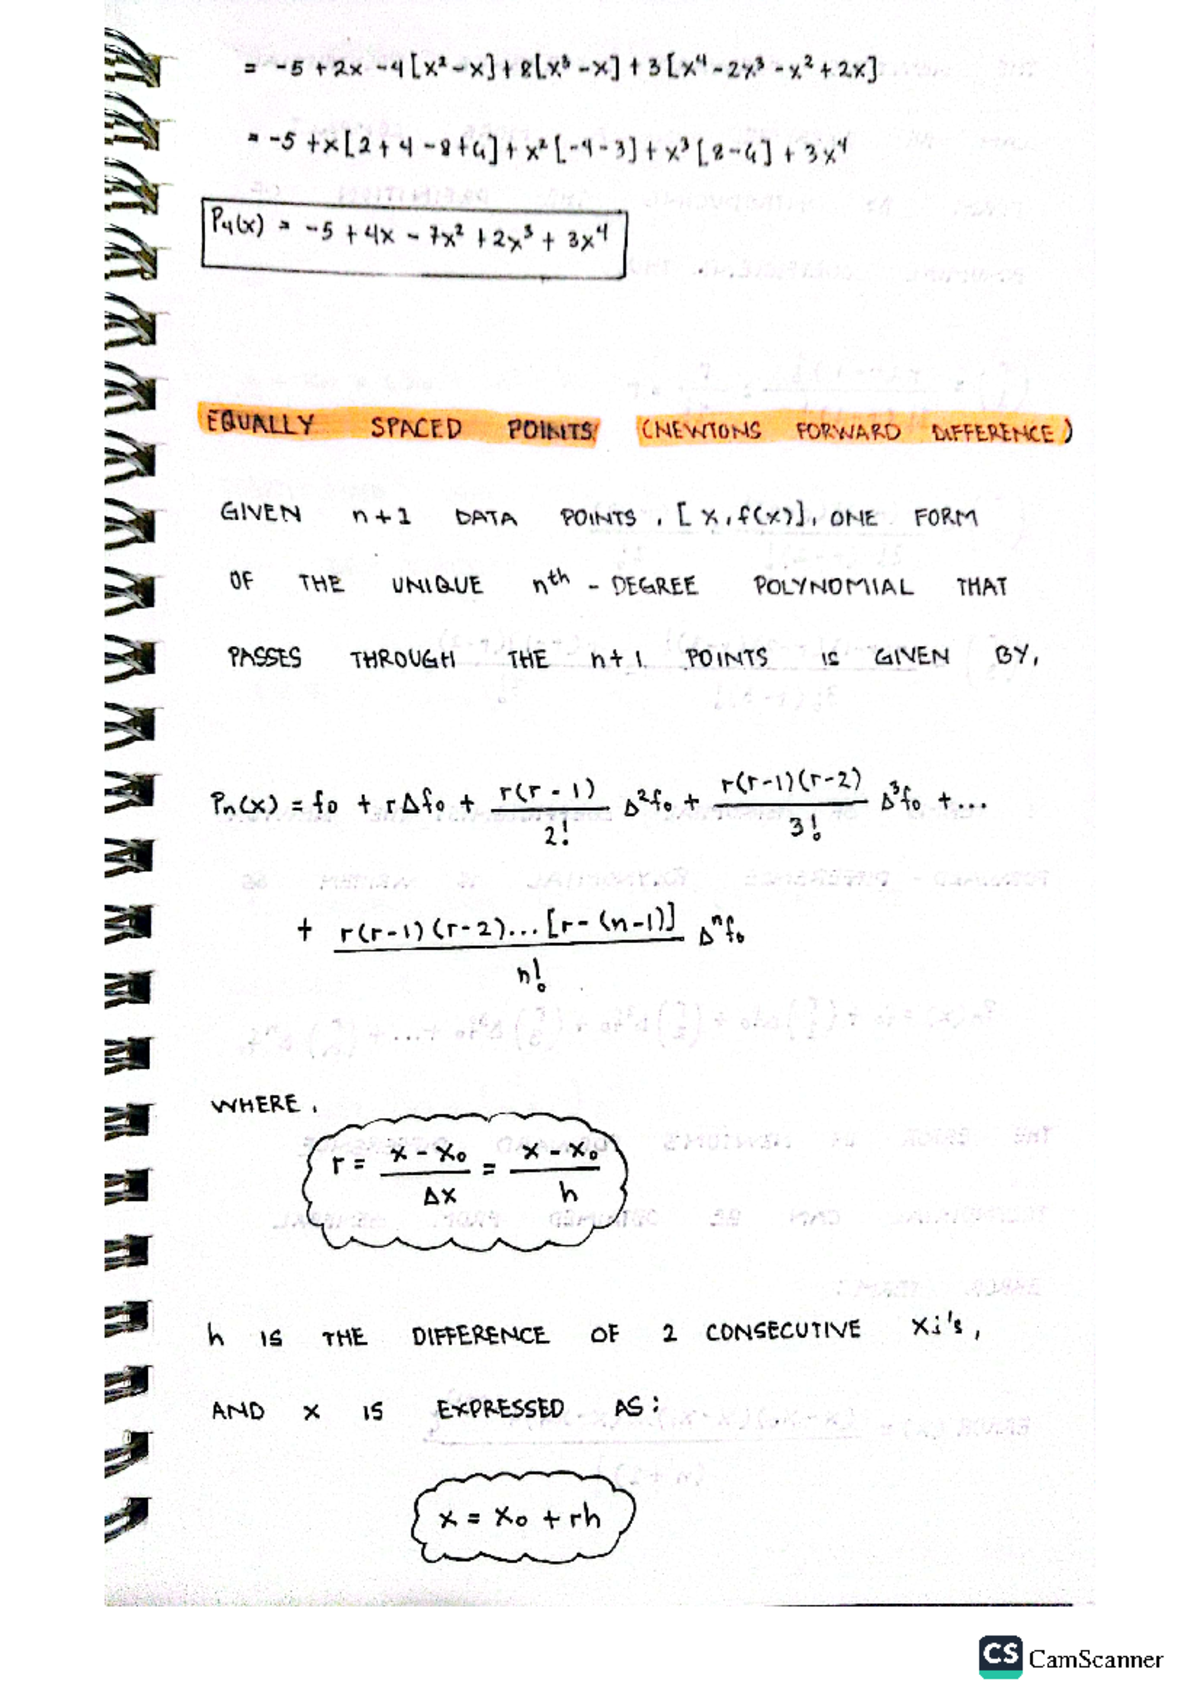 = -5 + 2x - 4[x² - x] + 8[x³ - x] + 3[x⁴ - 2x³ - x² + 2x]
= -5 + x[2 + 4 - 8 + 6] + x²[-4 - 3] + x³[8 - 6] + 3x⁴
P₄(x) = -5 + 4x - 7x² + 2x³ + 3x⁴
EQUALLY SPACED POINTS (NEWTONS FORWARD DIFFERENCE)
GIVEN n+1 DATA POINTS, [x, f(x)], ONE FORM
OF THE UNIQUE nth - DEGREE POLYNOMIAL THAT
PASSES THROUGH THE n+1 POINTS IS GIVEN BY,
Pn(x) = f₀ + rΔf₀ + r(r-1)/2! Δ²f₀ + r(r-1)(r-2)/3! Δ³f₀ + ...
+ r(r-1)(r-2)...[r-(n-1)]/n! Δⁿf₀
WHERE,
r = x - x₀/Δx = x - x₀/h
h IS THE DIFFERENCE OF 2 CONSECUTIVE Xi's,
AND x IS EXPRESSED AS:
x = x₀ + rh
CS CamScanner